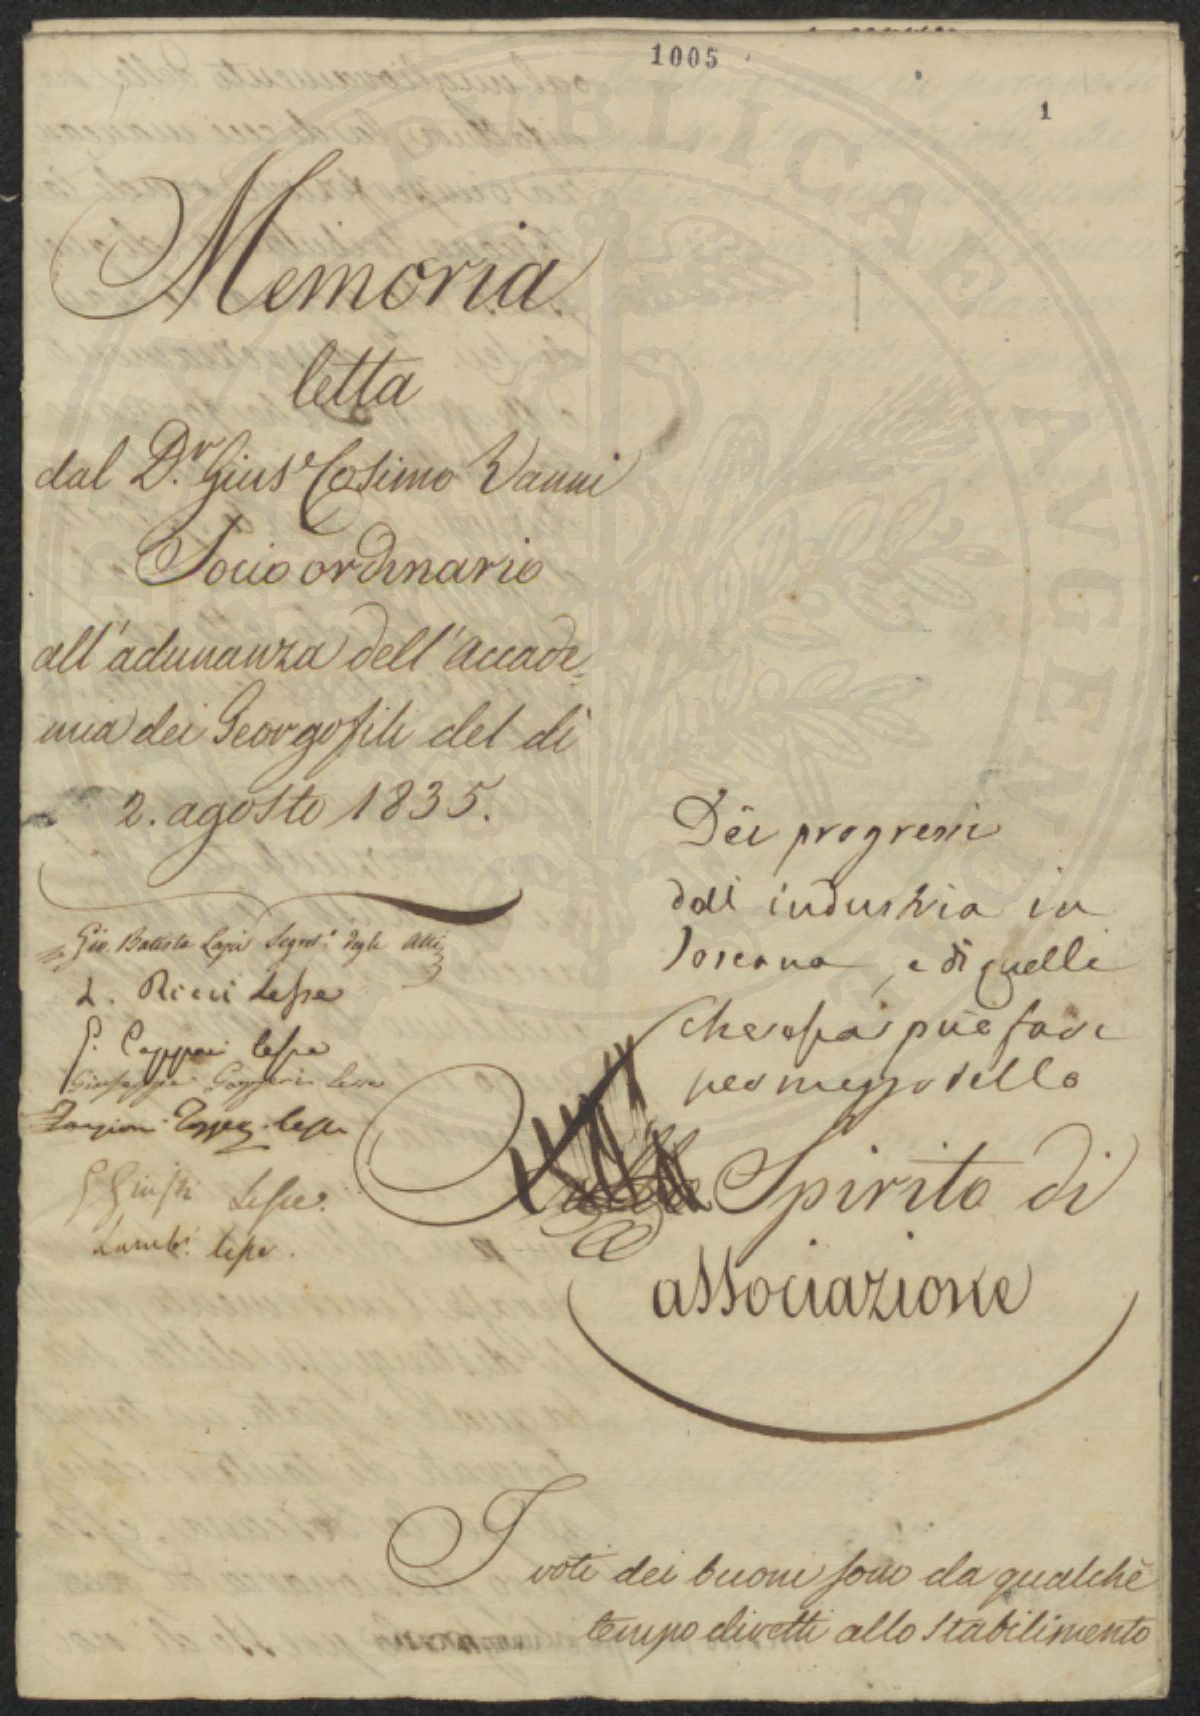 1005
1
Memoria
letta
dal D.r Gius.e Cosimo Vanni
Socio ordinario
all'adunanza dell'Accade=
mia dei Georgofili del dì
2. agosto 1835.
Gio. Batista Lapi Segret.o degli Atti
L. Ricci Lesse
G. Capponi lesse
Giuseppe Gazzeri Lesse
Targioni Tozzetti lesse
G Giusti Lesse.
Lambr. lesse.
Dei progressi
dell industria in
Toscana, e di quelli
che essa può fare
per mezzo dello
Spirito di
associazione
I voti dei buoni sono da qualche
tempo diretti allo stabilimento
PUBLICAE AUGENDAE